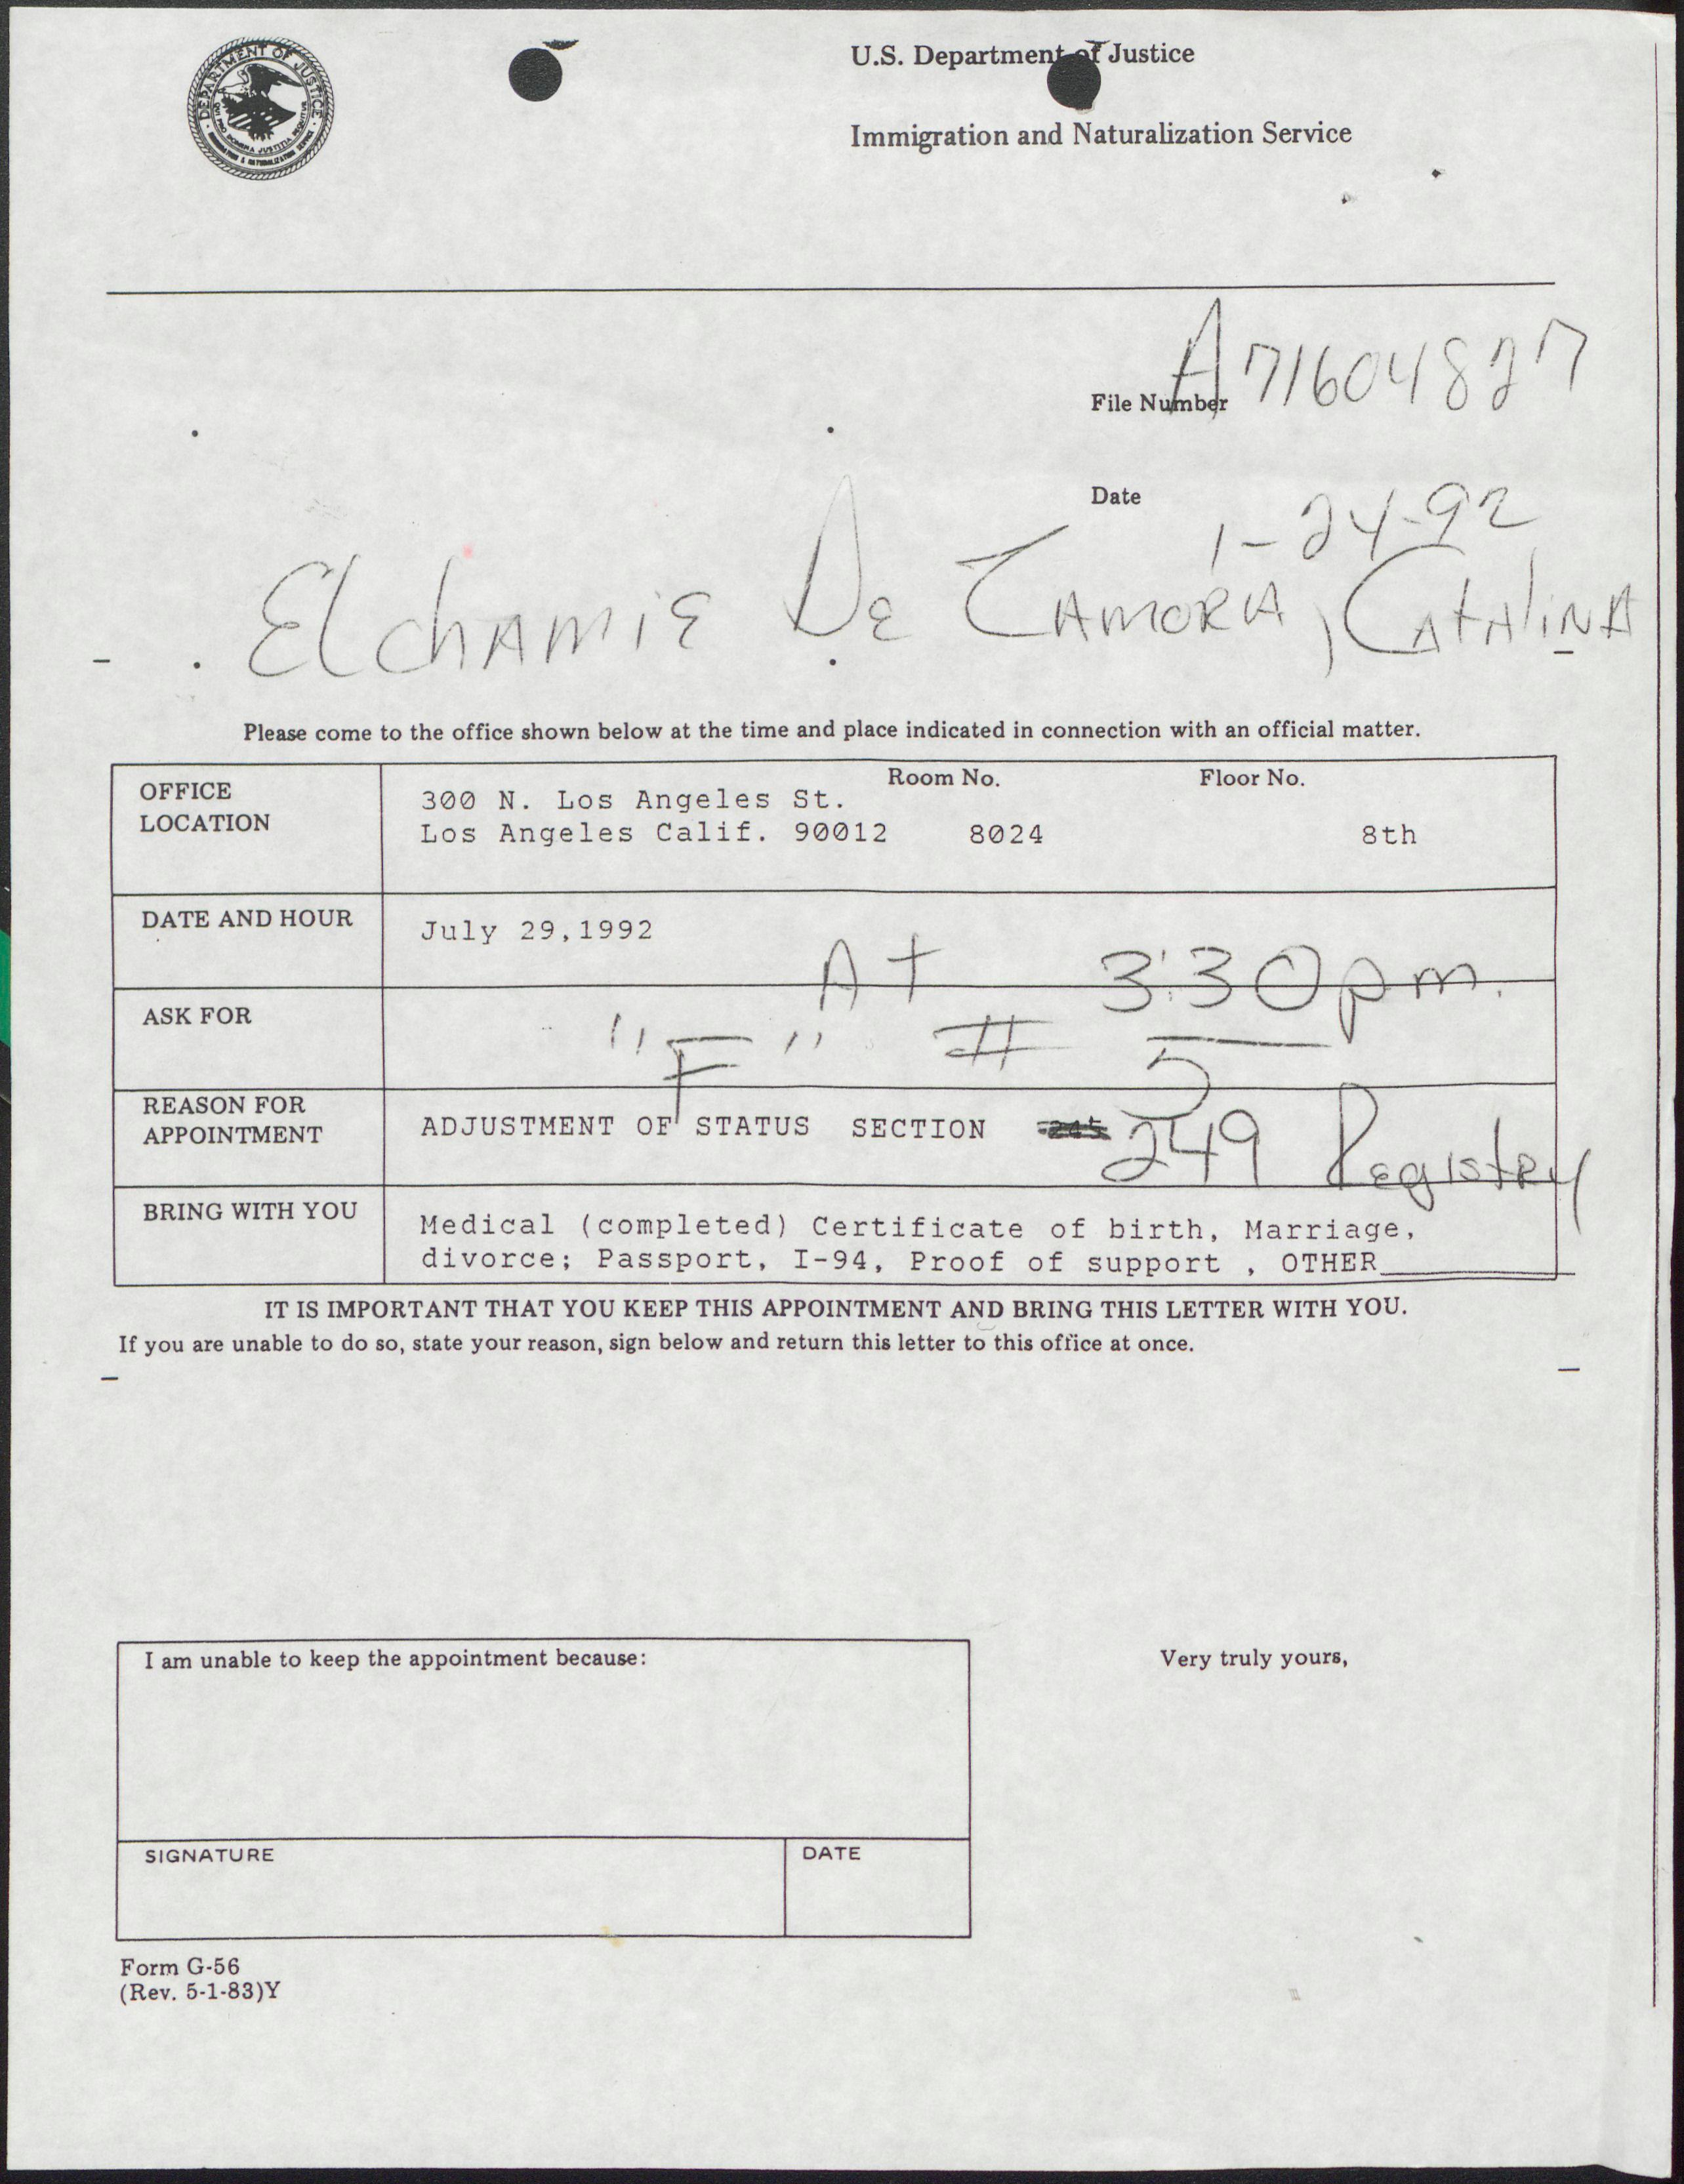 DEPARTMENT OF JUSTICE
QUI PRO DOMINA JUSTITIA SEQUITUR
IMMIGRATION & NATURALIZATION SERVICE
U.S. Department of Justice
Immigration and Naturalization Service
File Number A71604827
Date 1-24-92
Elchamie De Zamora, Catalina
Please come to the office shown below at the time and place indicated in connection with an official matter.
OFFICE LOCATION
Room No. Floor No.
300 N. Los Angeles St.
Los Angeles Calif. 90012 8024 8th
DATE AND HOUR July 29,1992 At 3:30pm.
ASK FOR "F" # 5
REASON FOR APPOINTMENT
ADJUSTMENT OF STATUS SECTION 245 249 Registry
BRING WITH YOU
Medical (completed) Certificate of birth, Marriage,
divorce; Passport, I-94, Proof of support , OTHER
IT IS IMPORTANT THAT YOU KEEP THIS APPOINTMENT AND BRING THIS LETTER WITH YOU.
If you are unable to do so, state your reason, sign below and return this letter to this office at once.
I am unable to keep the appointment because:
Very truly yours,
SIGNATURE DATE
Form G-56
(Rev. 5-1-83)Y